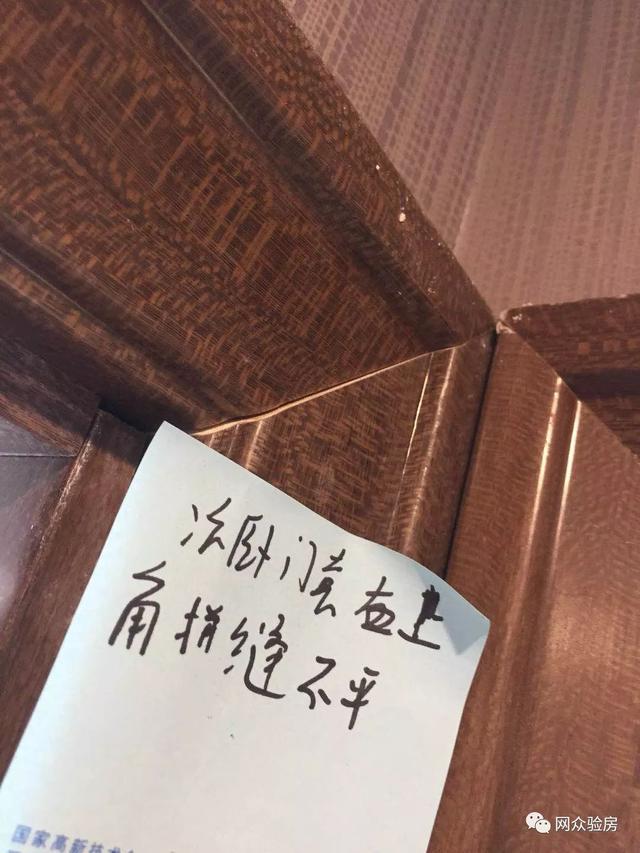 次卧门套右上
角拼缝不平
国家高新技术
网众验房